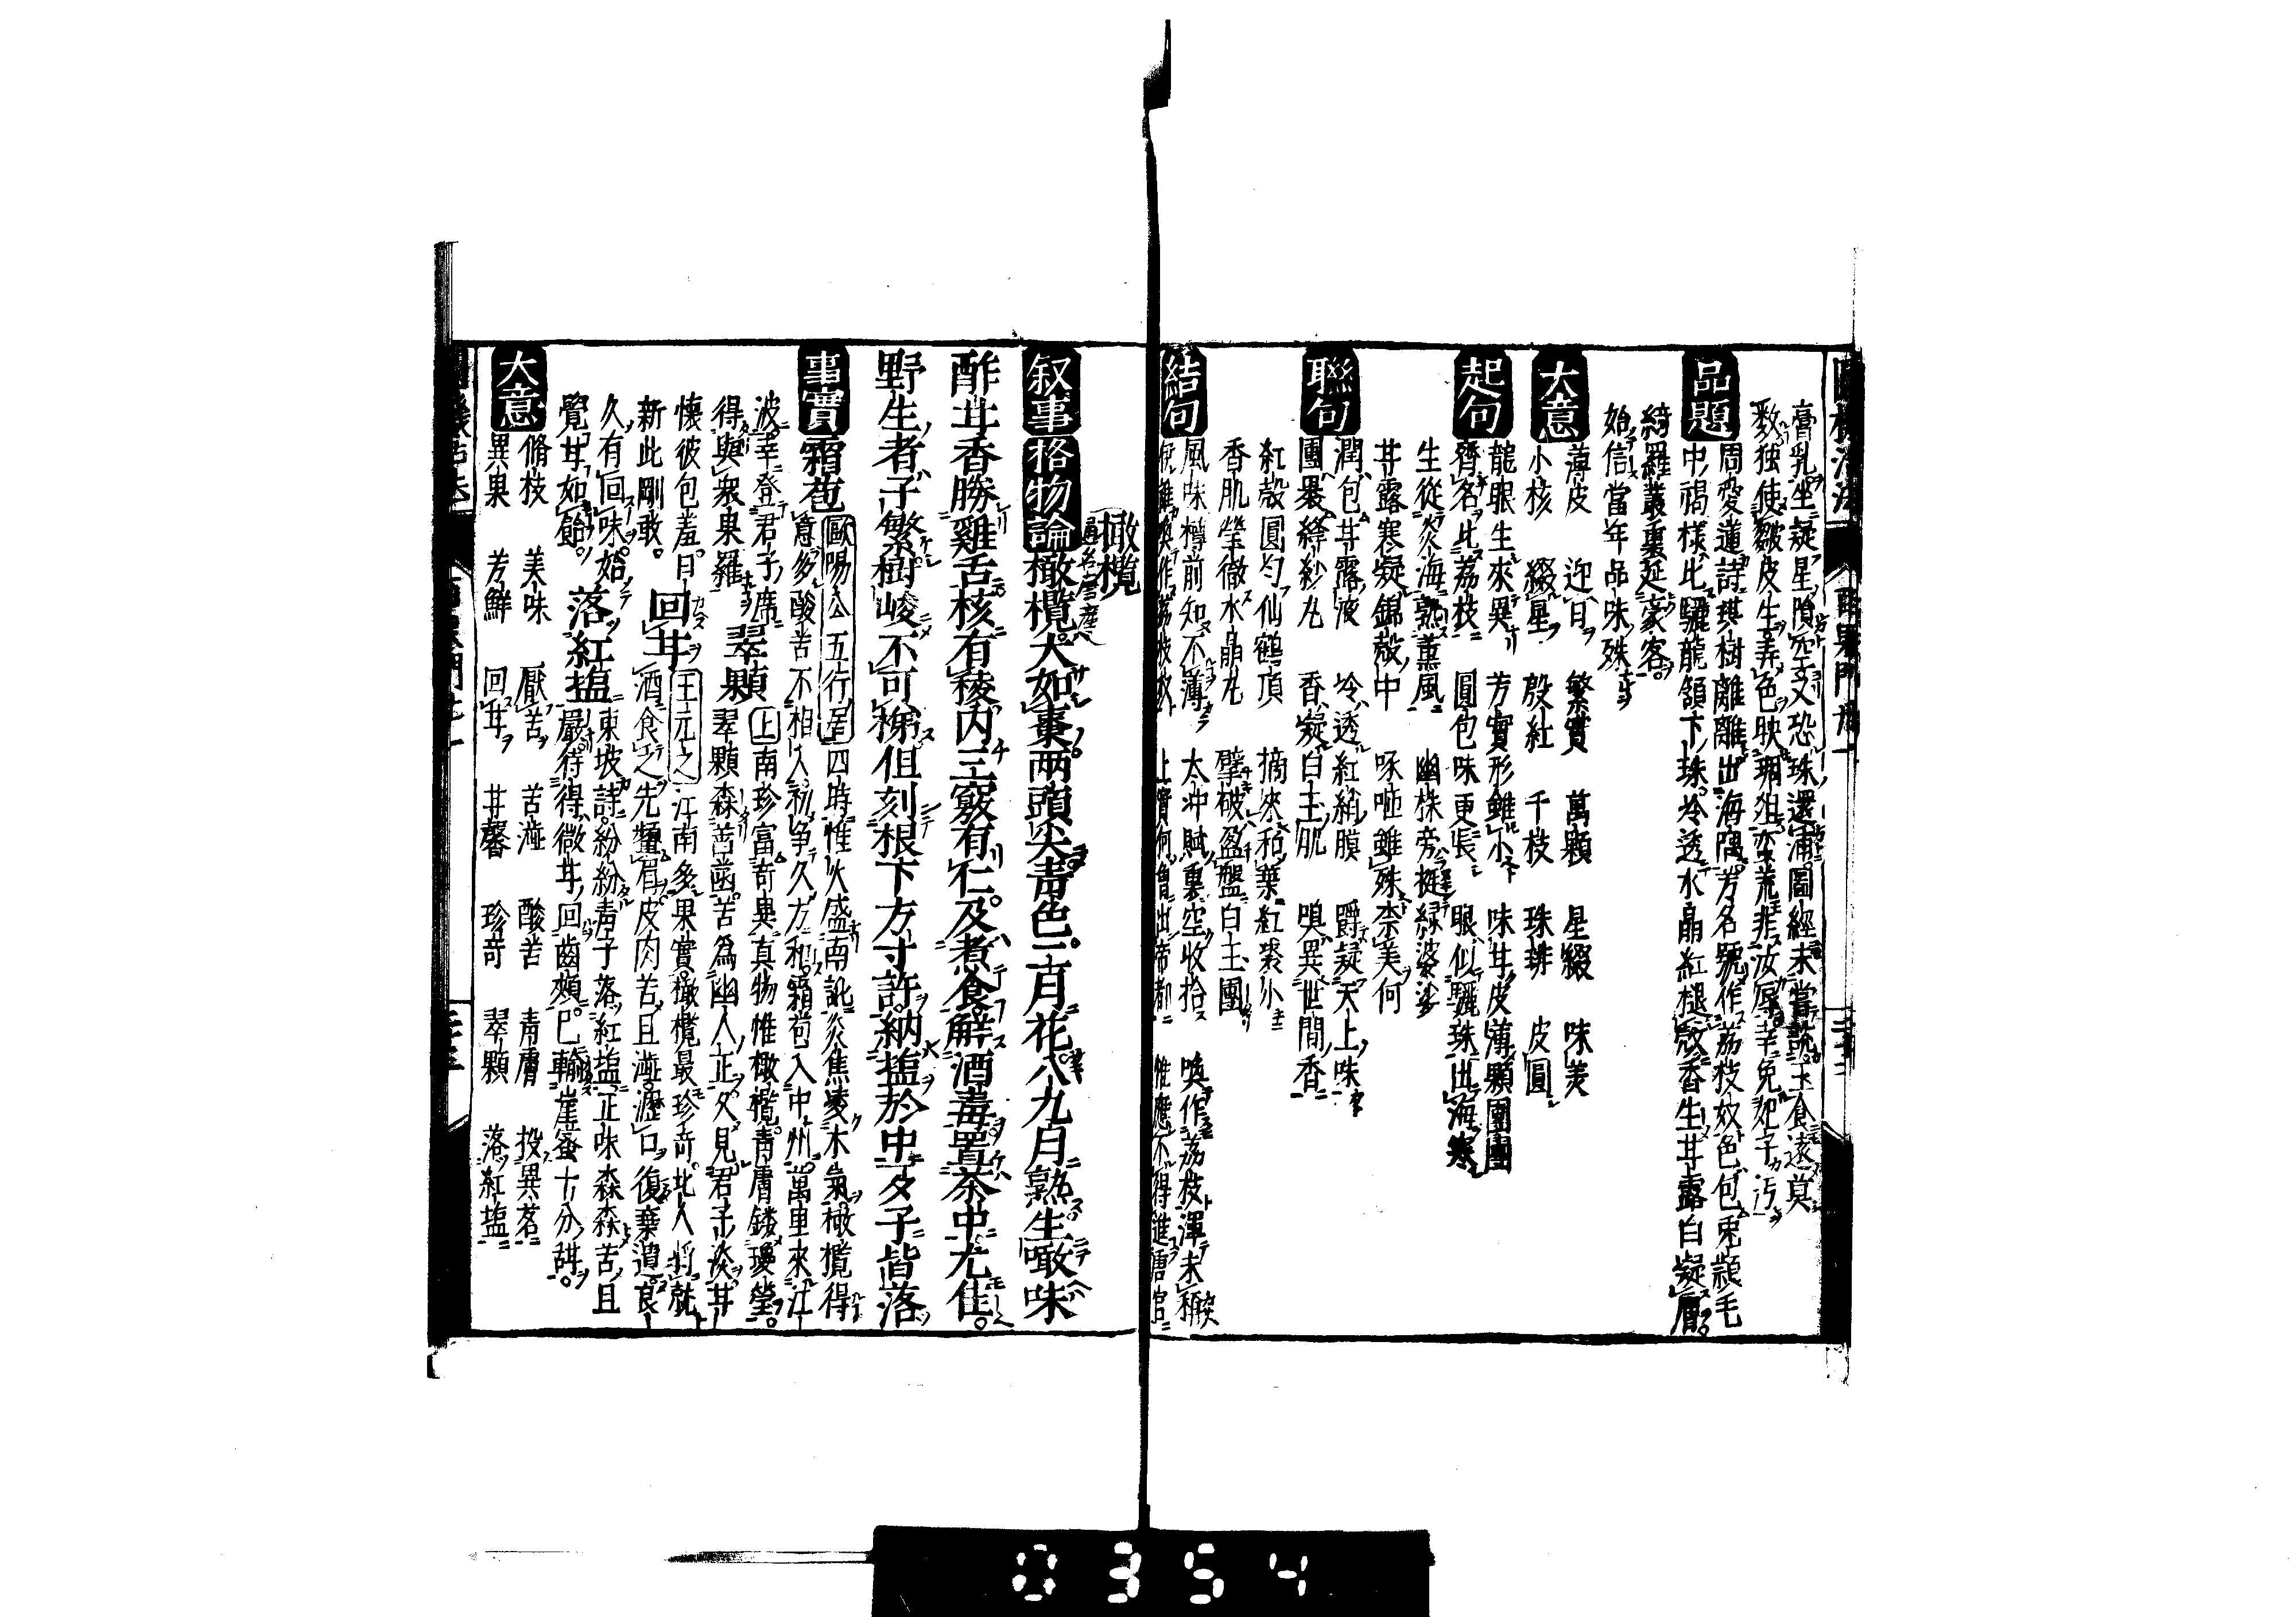 膏乳坐疑星隕空又恐珠還浦圖經未嘗説玉食遠莫
數独使皺皮生弄色映琱俎蛮荒非汝辱幸免妃子汚
品題
周愛蓮詩琪樹離離出海隅芳名號作荔枝奴色包東顆毛
中褐様比驪龍頷下珠冷透水晶紅腿殻香生甘露白凝膚
綺羅叢裏延豪客
始信當年品味殊
大意
薄皮 迎日 繁實 萬顆 星綴 味美
小核 綴星 殷紅 千枝 珠琲 皮圓
起句
龍眼生來異 芳實形雖小 味甘皮薄顆團團
齊名比荔枝 圓包味更長 眼似驪珠出海寒
生從炎海熟薫風 幽株旁挺緑婆娑
甘露寒凝錦殻中 味咂雖殊柰美何
聯句
潤包甘露液 冷透紅綃膜 爵凝天上味
團裹絳紗丸 香凝白玉肌 嗅異世間香
紅殻圓匀仙鶴頂 摘來和葉紅裳小
香肌瑩徹水晶丸 擘破盈盤白玉團
結句
風味樽前知不薄 太冲賦裏空收拾 喚作荔枝渾未稱
橄欖
叙事 格物論 橄欖大如棗兩頭尖青色二月花八九月熟生噉味
酢甘香勝雞舌核有稜内三竅有仁及煮食解酒毒置茶中尤佳
野生者子繁樹峻不可梯但刻根下方寸許納塩於中一夕子皆落
事實
霜苞 歐陽公 五行居四時惟火盛南訛炎焦凌木氣橄欖得
意多酸苦不相入初争久方和霜苞入中州萬里來江
波幸登君子席
得與衆果羅 翠顆 上 南珍富奇異真物惟橄欖青膚鏤瑿瑩
翠顆森苦菡苦爲幽人正久見君子淡甘
懷彼包羞日
新此剛敢 回甘 王元之 江南多果實橄欖最珍奇北人將就
酒食之先顰眉皮肉苦且澁瀝口復棄遺良
久有回味始
覺甘如飴 落紅塩 東坡詩紛紛青子落紅塩正味森森苦且
嚴待得微甘回齒頰已輸崖蜜十分甜
大意
脩枝 美味 厭苦 苦澁 酸苦 青膚 投異茗
異果 芳鮮 回甘 甘馨 珍奇 翠顆 落紅塩
0354